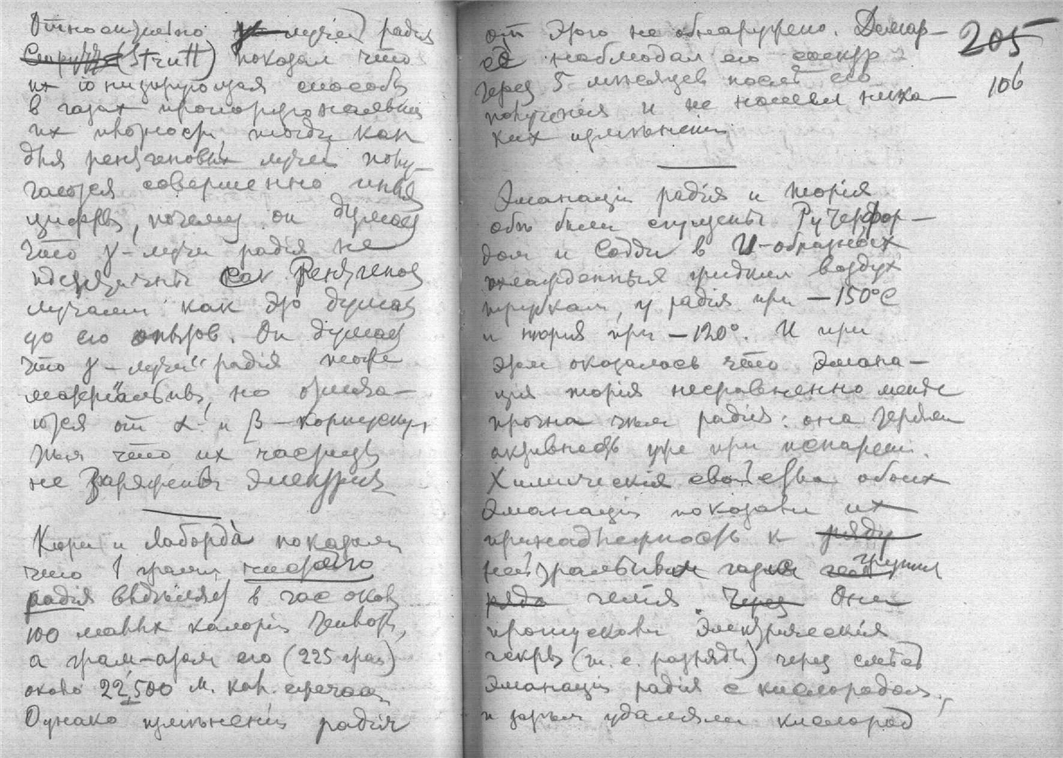 Относительно γ-лучей радія
(Strutt) показал что
их іонизирующая способн
в газах пропорціональна
их плотности тогда как
для рентгеновых лучей полу-
чаются совершенно иныя
цифры, почему он думает
что γ-лучи радія не
идентичны с Рентгенов
лучами как это думал
до его опытов. Он думает
что γ-лучи радія тоже
матеріальны, но отлича-
ются от α- и β-корпускул
тем что их частицы
не заряжены электрич
Кюри и Лаборда показали
что 1 грамм чистаго
радія выделяет в час около
100 малых калорій теплоты,
а грам-атом его (225 грам)
около 22,500 м. кал.
Однако измѣненій радія
от этого не обнаружено. Демар-
сэ наблюдал его спектр
через 5 мѣсяцев послѣ его
полученія и не нашел ника-
ких измѣненій.
205
106
Эманаціи радія и торія
обѣ были сгущены Рутерфор-
дом и Содди в U-образных
охлажденныя жидким воздух
трубках, у радія при -150°С
и торія при -120°. И при
этом оказалось что эмана-
ція торія несравненно менѣе
прочна чѣм радія: она теряет
активность уже при испарені.
Химическія свойства обоих
эманацій показали их
принадлежность к ряду
нейтральных газов группы
ряда гелія. Через Они
пропускали электрическія
искры (т. е. разряды) через смѣсь
эманаціи радія с кислородом,
и затѣм удаляли кислород